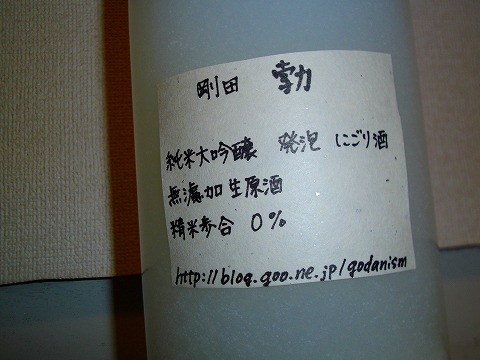 剛田 勃
純米大吟醸 発泡 にごり酒
無濾加生原酒
精米歩合 0%
http://blog.goo.ne.jp/godanism